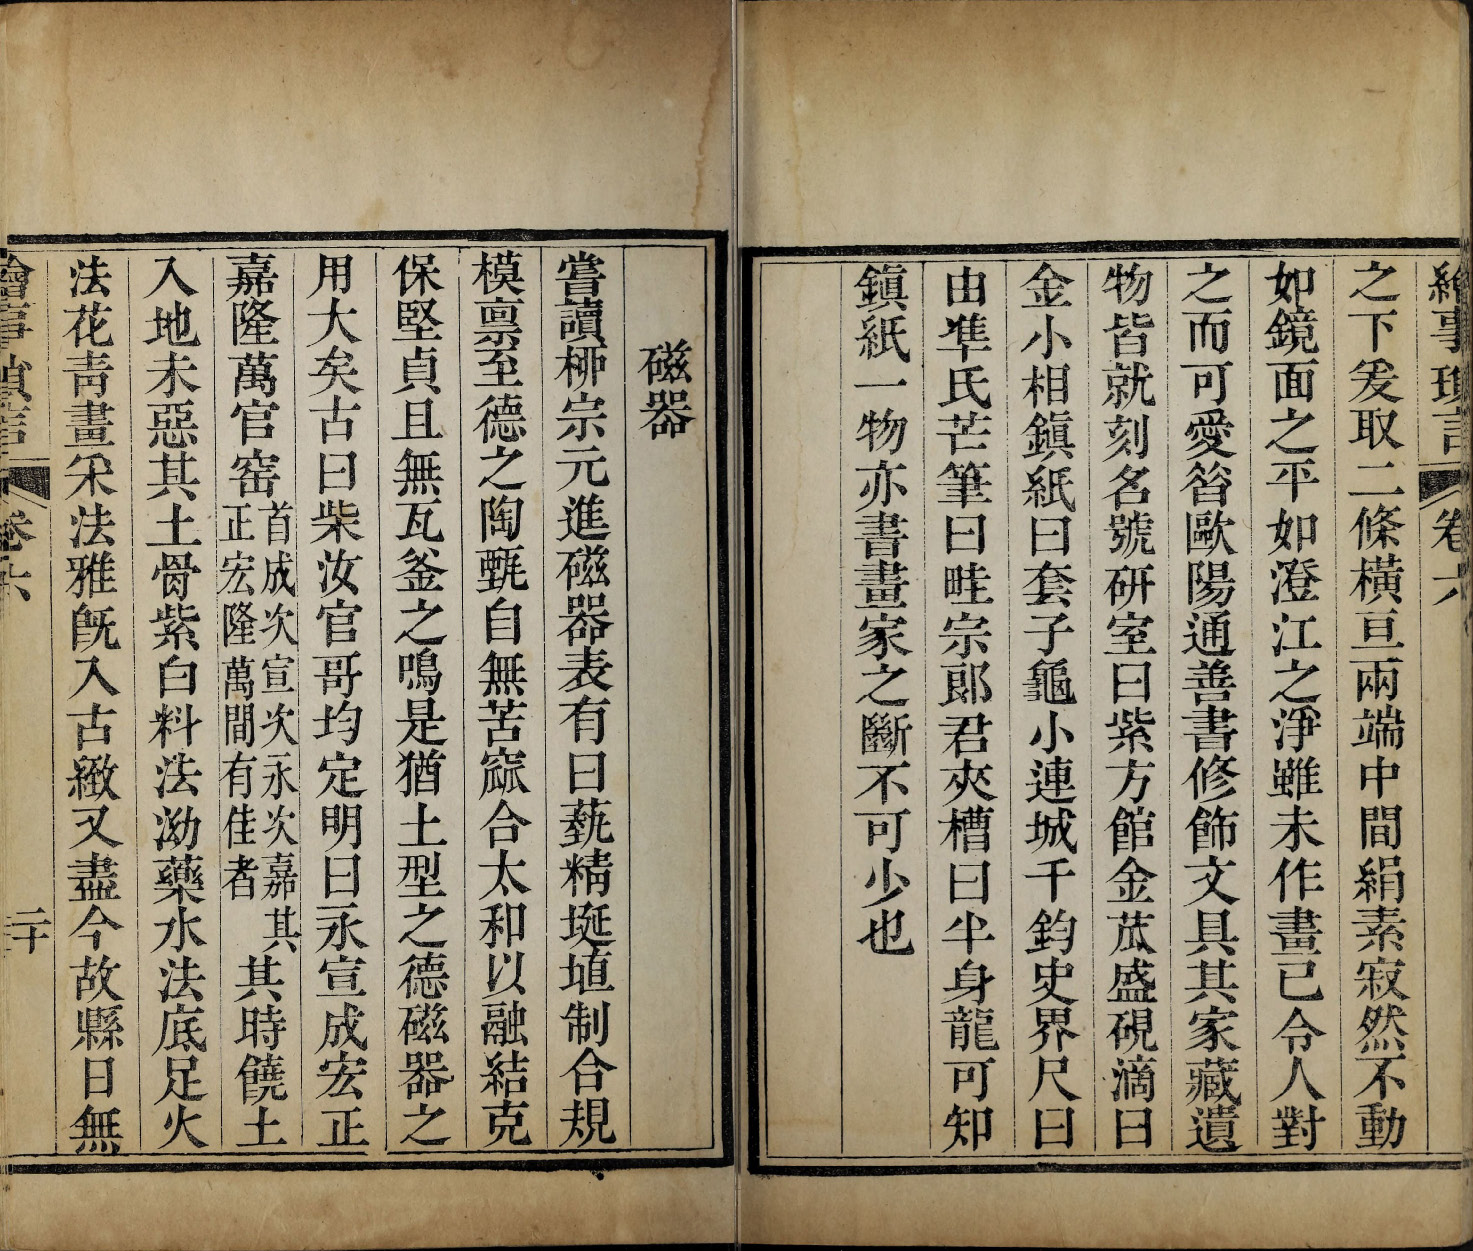 繪事瑣言 卷六
之下爰取二條橫亘兩端中間絹素寂然不動
如鏡面之平如澄江之淨雖未作畫已令人對
之而可愛昝歐陽通善書修飾文具其家藏遺
物皆就刻名號研室曰紫方館金苽盛硯滴曰
金小相鎮紙曰套子龜小連城千鈞史界尺曰
由準氏芒筆曰畦宗郎君夾槽曰半身龍可知
鎮紙一物亦書畫家之斷不可少也
磁器
嘗讀柳宗元進磁器表有曰藝精埏埴制合規
模禀至德之陶甄自無苦窳合太和以融結克
保堅貞且無瓦釜之鳴是猶土型之德磁器之
用大矣古曰柴汝官哥均定明曰永宣成宏正
嘉隆萬官窑首成次宣次永次嘉其正宏隆萬間有佳者其時饒土
入地未惡其土骨紫白料法泑藥水法底足火
法花青畫采法雅旣入古緻又盡今故縣日無
繪事瑣言 卷六 二十